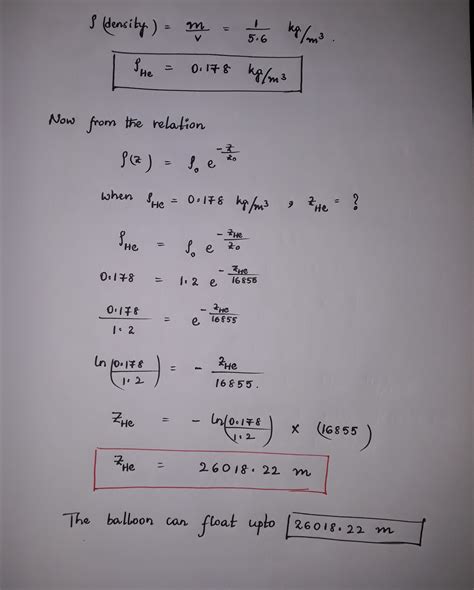 ρ (density) = m/V = 1/5.6 kg/m³.
ρHe = 0.178 kg/m³
Now from the relation
ρ(z) = ρ₀ e^(-z/z₀)
when ρHe = 0.178 kg/m³ , zHe = ?
ρHe = ρ₀ e^(-zHe/z₀)
0.178 = 1.2 e^(-zHe/16855)
0.178/1.2 = e^(-zHe/16855)
ln(0.178/1.2) = - zHe/16855.
zHe = - ln(0.178/1.2) × (16855)
zHe = 26018.22 m
The balloon can float upto 26018.22 m